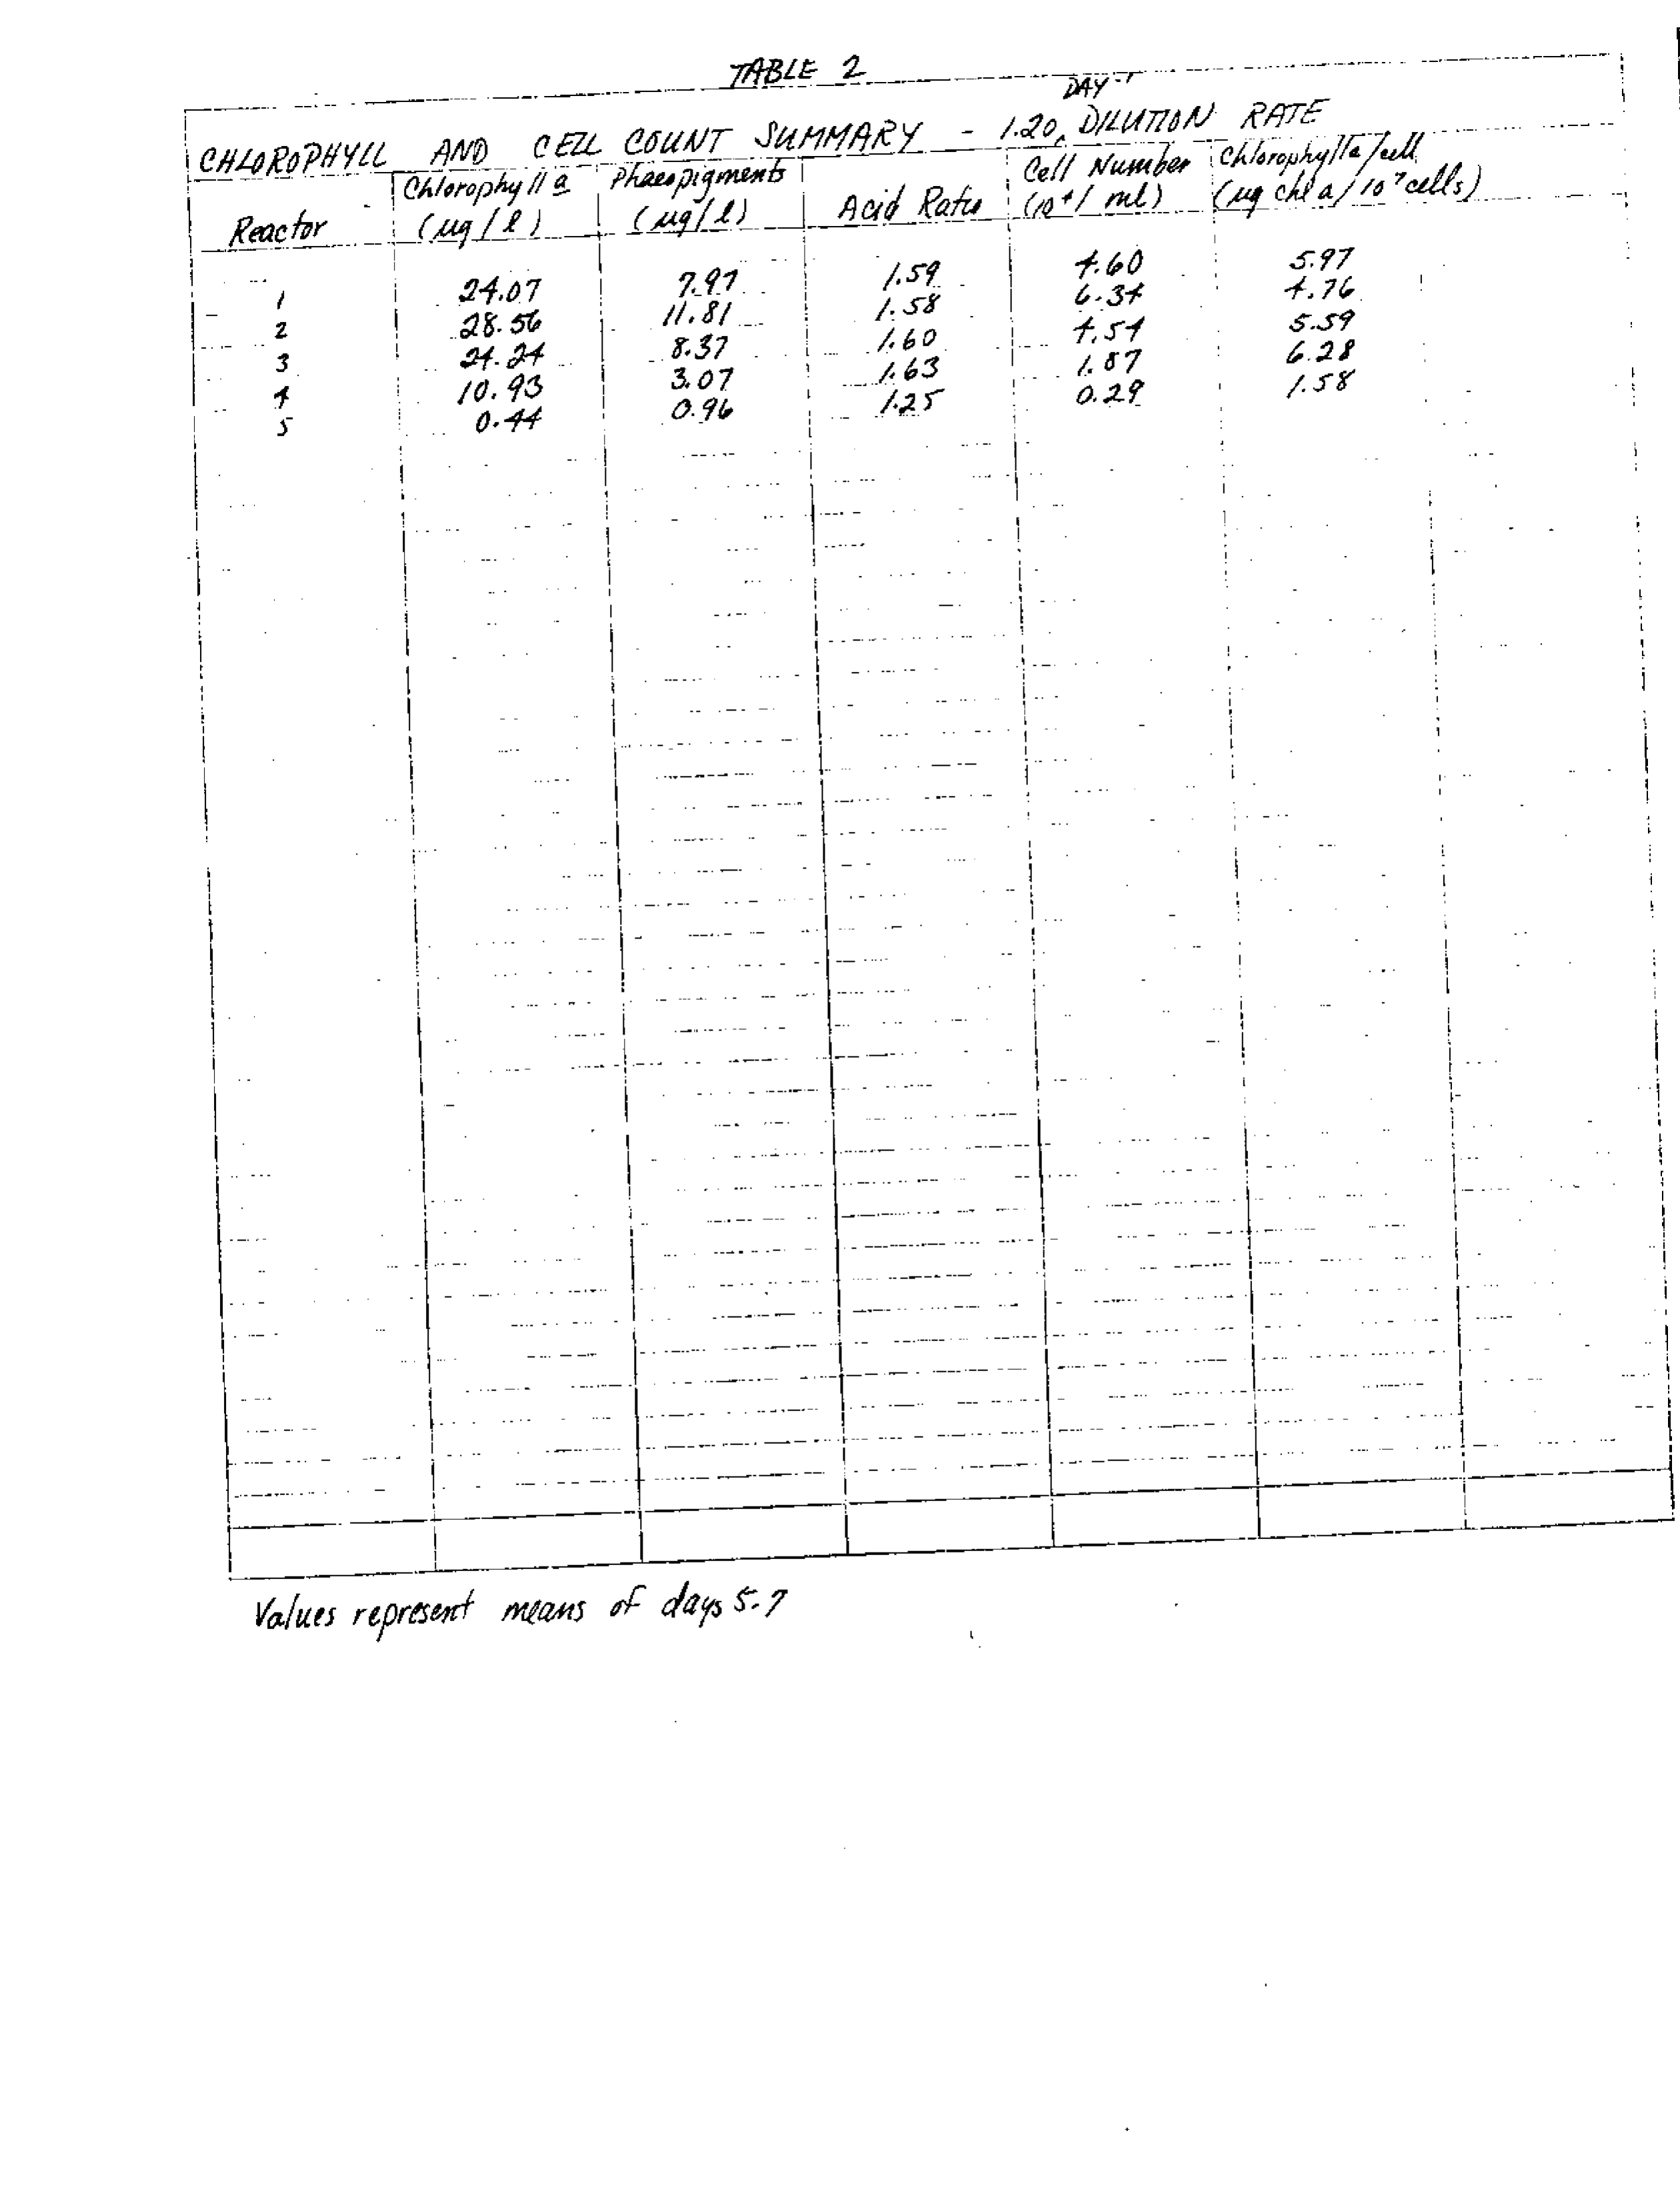 TABLE 2
CHLOROPHYLL AND CELL COUNT SUMMARY - 1.20 DAY⁻¹ DILUTION RATE
Reactor Chlorophyll a (µg/l) Phaeopigments (µg/l) Acid Ratio Cell Number (10⁴/ml) Chlorophyll a/cell (µg chl a/10⁷ cells)
1 24.07 7.97 1.59 4.60 5.97
2 28.56 11.81 1.58 6.34 4.76
3 24.24 8.37 1.60 4.54 5.59
4 10.93 3.07 1.63 1.87 6.28
5 0.44 0.96 1.25 0.29 1.58
Values represent means of days 5-7